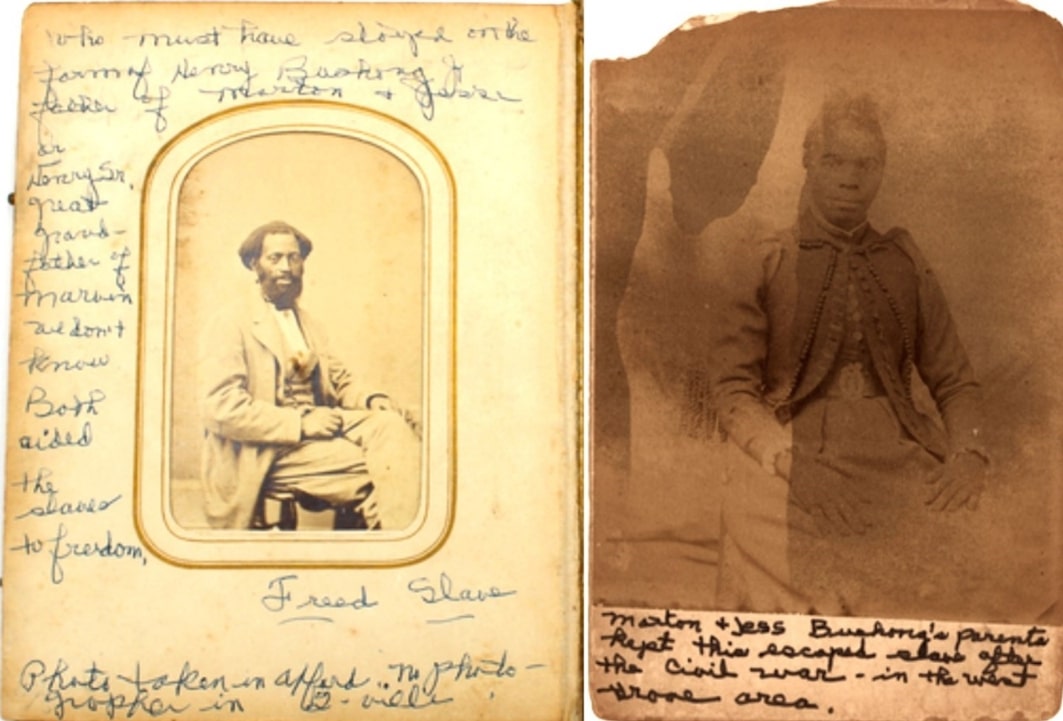 who must have stayed on the
farm of Henry Bushong Jr
father of Marton + Jesse
or
Henry Sr.
great
grand-
father of
Marvin
we don't
know
Both
aided
the
slaves
to freedom.
Freed Slave
Photo taken in Afford. No photo-
grapher in Q-ville
Marton + Jess Bushong's parents
kept this escaped slave after
the Civil war - in the West
Grove area.